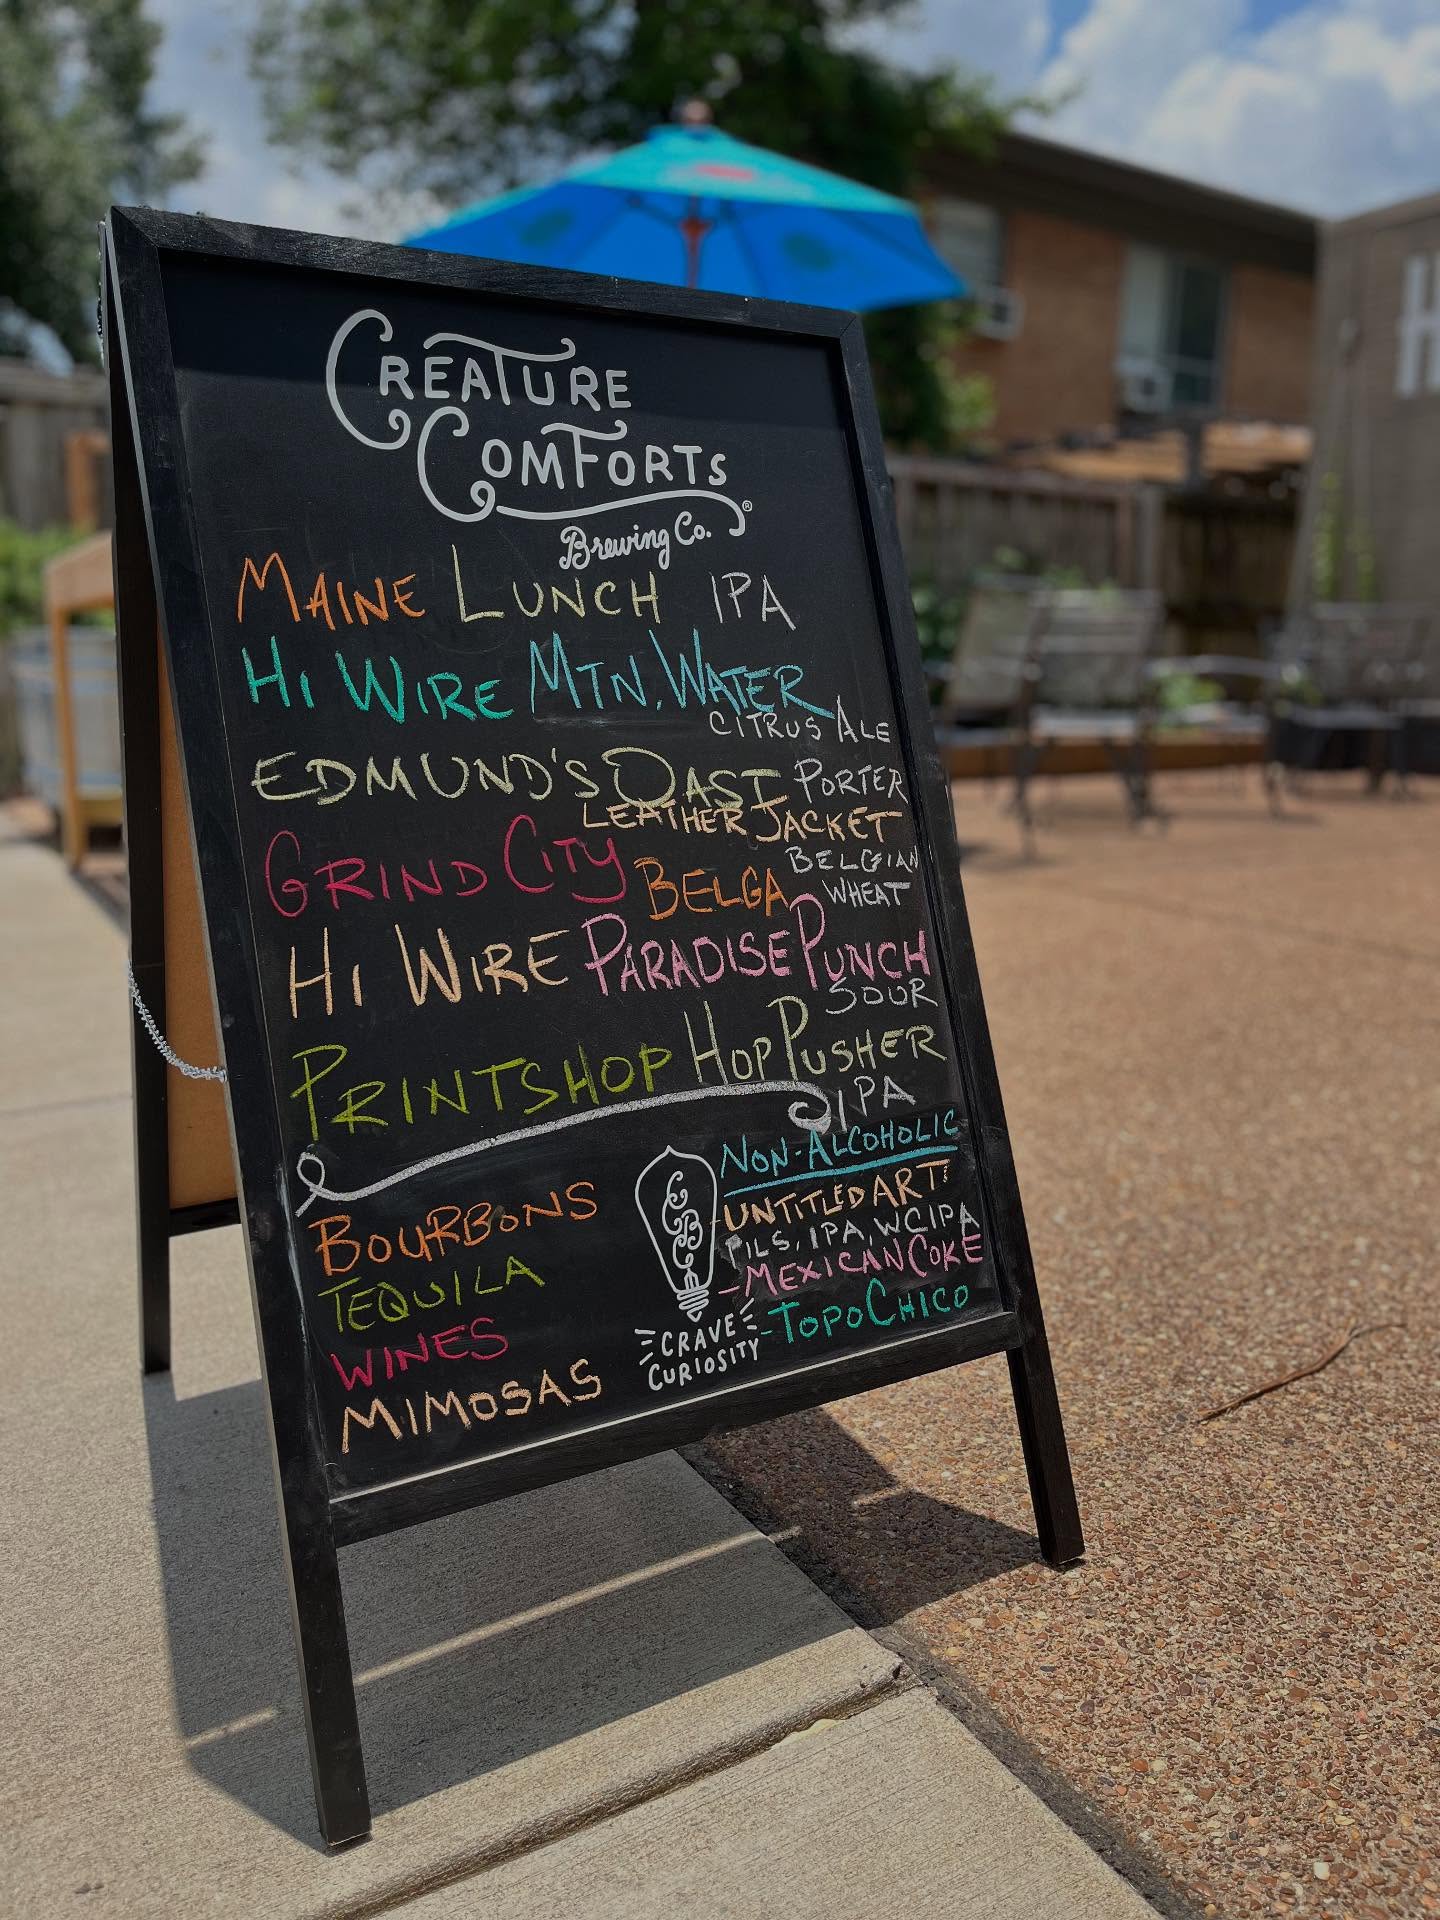 CREATURE
COMFORTS®
Brewing Co.
MAINE LUNCH IPA
HI WIRE MTN. WATER
CITRUS ALE
EDMUND'S OAST PORTER
LEATHER JACKET
GRIND CITY BELGA BELGIAN
WHEAT
HI WIRE PARADISE PUNCH
SOUR
PRINTSHOP HOP PUSHER
IPA
BOURBONS
TEQUILA
WINES
MIMOSAS
CCBC
CRAVE
CURIOSITY
NON-ALCOHOLIC
-UNTITLED ART:
PILS, IPA, WCIPA
-MEXICAN COKE
-TOPO CHICO